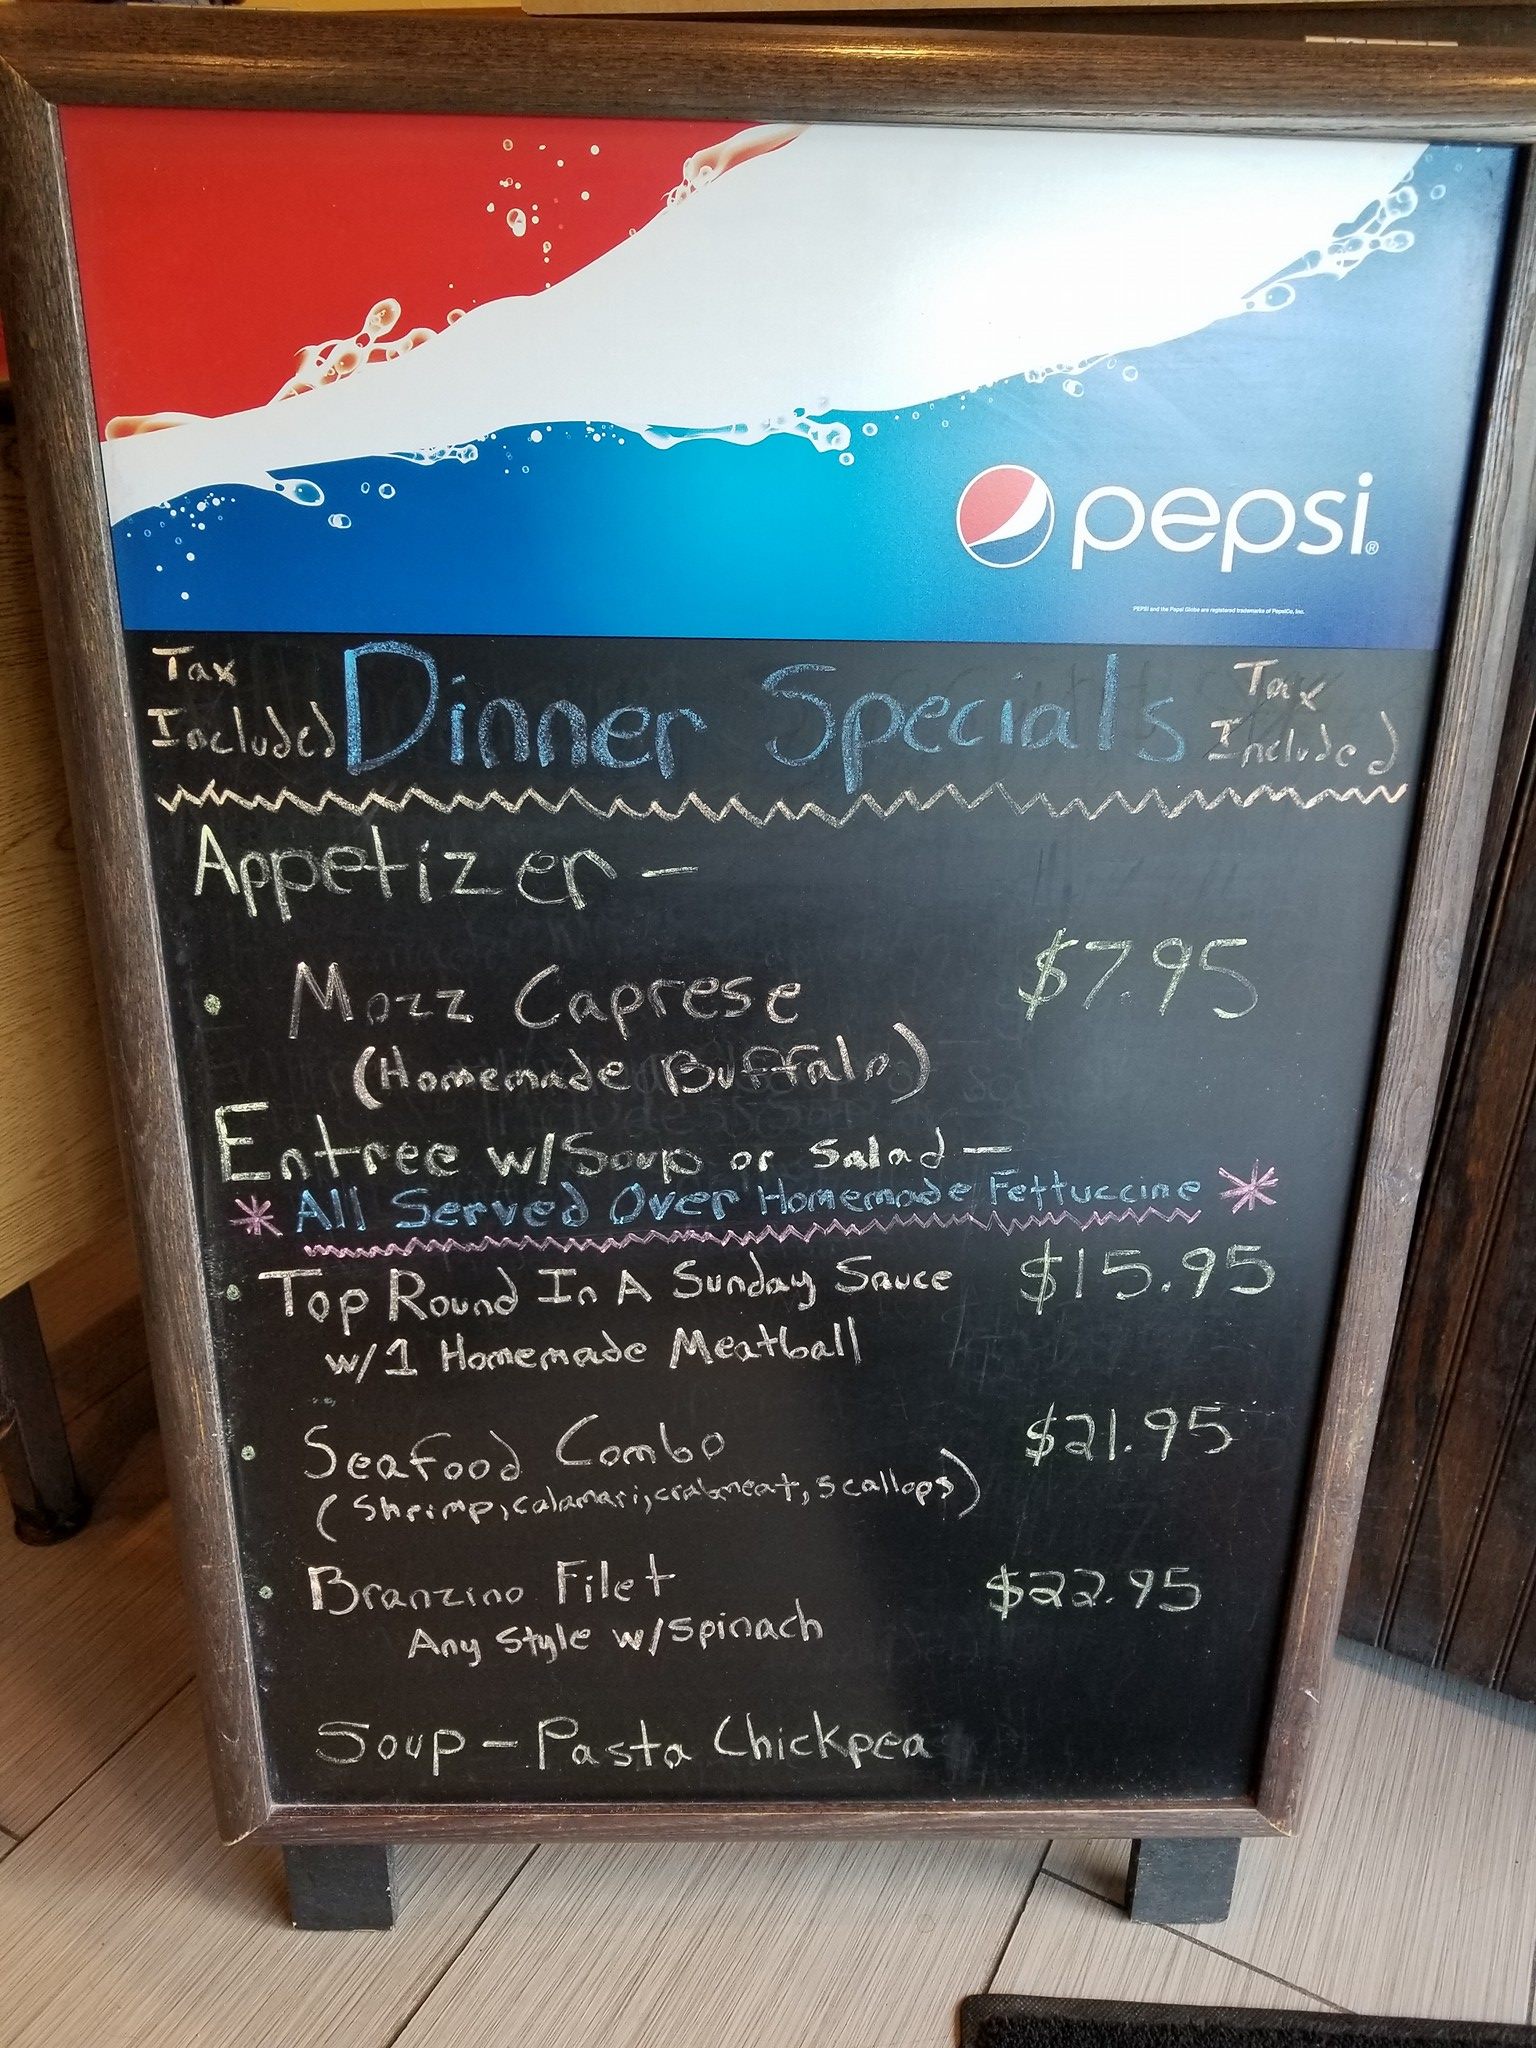 pepsi®
PEPSI and the Pepsi Globe are registered trademarks of PepsiCo, Inc.
Tax Included Dinner Specials Tax Included
Appetizer -
• Mozz Caprese $7.95
(Homemade Buffalo)
Entree w/Soup or Salad -
* All Served Over Homemade Fettuccine *
• Top Round In A Sunday Sauce $15.95
w/1 Homemade Meatball
• Seafood Combo $21.95
(Shrimp, calamari, crabmeat, scallops)
• Branzino Filet $22.95
Any Style w/Spinach
Soup - Pasta Chickpea